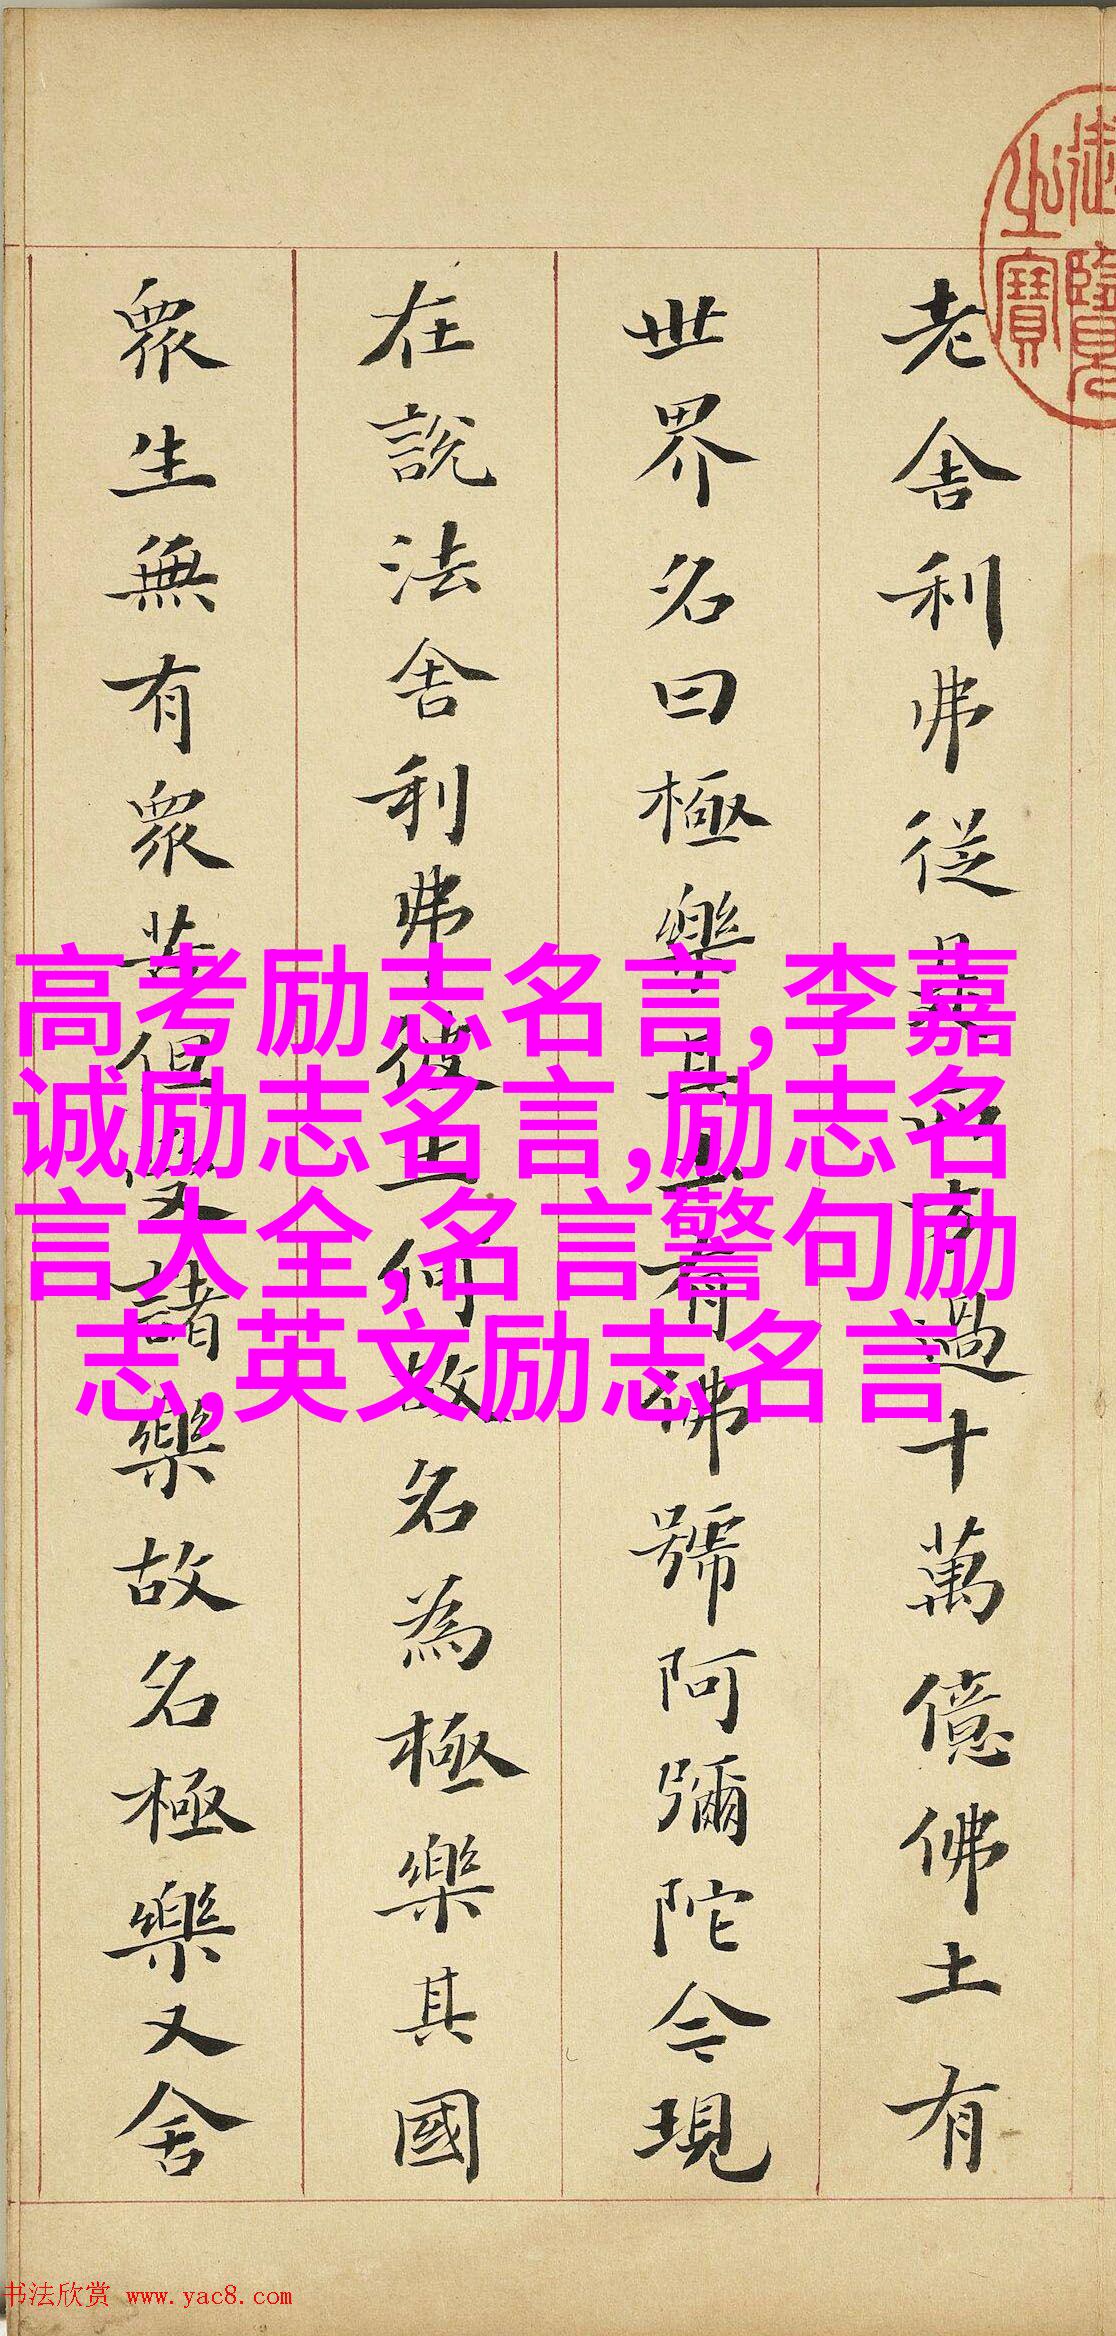 老舍利弗從是西方過十萬億佛土有
世界名曰極樂其土有佛號阿彌陀今現
在說法舍利弗彼土何故名為極樂其國
眾生無有眾苦但受諸樂故名極樂又舍
御覽
之寶
高考励志名言,李嘉
诚励志名言,励志名
言大全,名言警句励
志,英文励志名言
书法欣赏 www.yac8.com